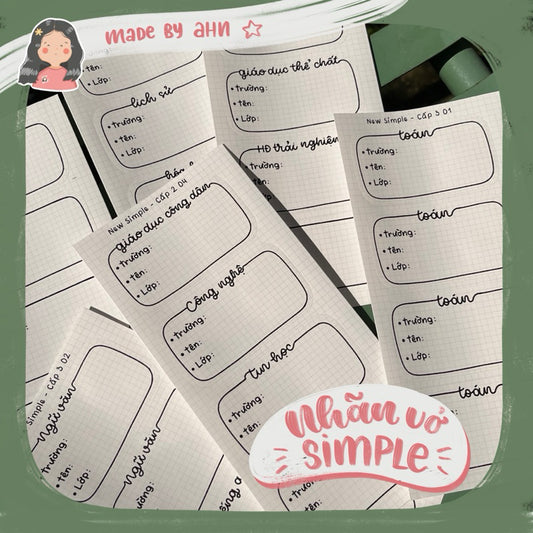 made by ahn
trường:
tên:
Lớp:
lịch sử
trường:
tên:
Lớp:
giáo dục thể chất
trường:
tên:
Lớp:
HĐ trải nghiệm
trường:
tên:
Lớp:
New Simple - Cấp 3 01
toán
trường:
tên:
Lớp:
toán
trường:
tên:
Lớp:
toán
trường:
tên:
Lớp:
toán
New Simple - Cấp 2 04
giáo dục công dân
trường:
tên:
Lớp:
Công nghệ
trường:
tên:
Lớp:
tin học
trường:
tên:
Simple - Cấp 3 02
Ngữ văn
trường:
tên:
Lớp:
Ngữ văn
trường:
Nhãn vở
SIMPLE